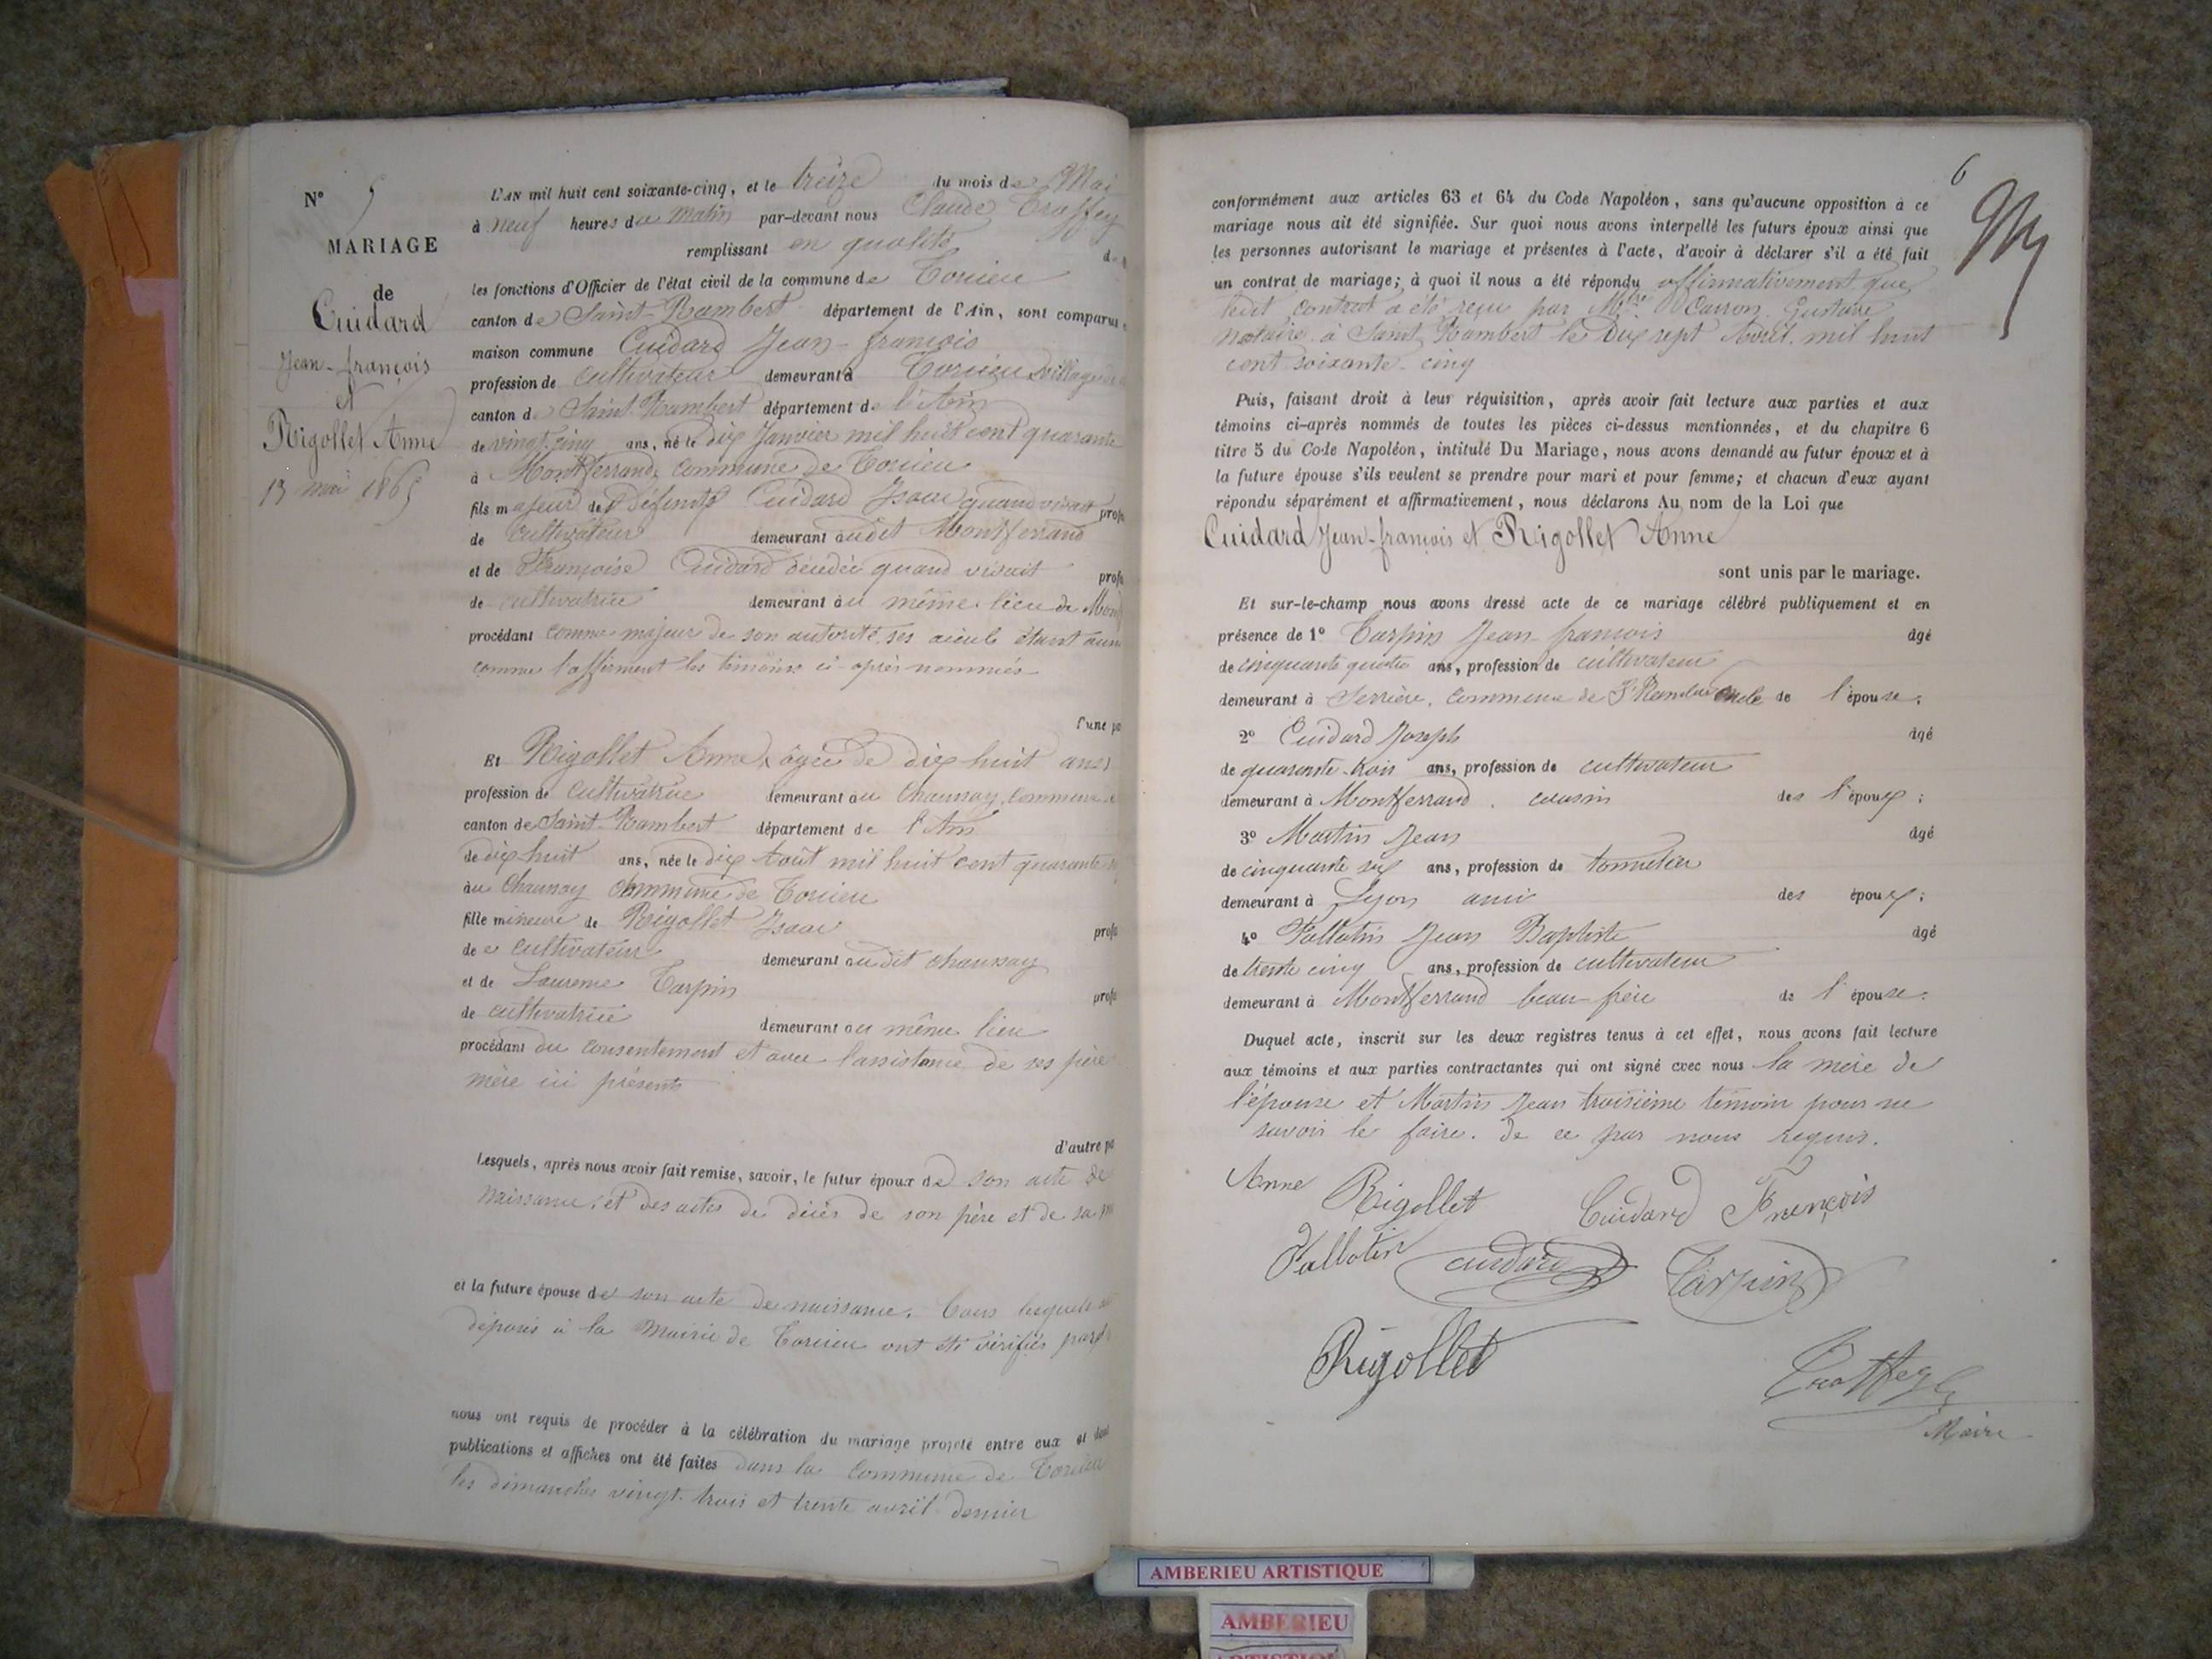 N° 5
MARIAGE
de
Cuidard
Jean-françois
et
Rigollet Anne
13 mai 1865
L'AN mil huit cent soixante-cinq, et le treize du mois de Mai
à neuf heures du matin par-devant nous Claude Troffey
remplissant en qualité de
les fonctions d'Officier de l'état civil de la commune de Torcieu
canton de Saint-Rambert département de l'Ain, sont comparus
maison commune Cuidard Jean-françois
profession de cultivateur demeurant à Torcieu village de
canton de Saint-Rambert département de l'Ain
de vingt cinq ans, né le dix Janvier mil huit cent quarante
à Montferrand, commune de Torcieu
fils majeur de défunts Cuidard Isaac quand vivait profe
de cultivateur demeurant audit Montferrand
et de Françoise Cuidard décédée quand vivait profe
de cultivatrice demeurant au même lieu de Mont
procédant comme majeur de son autorité, ses aieuls étant
comme l'affirment les témoins ci-après nommés
l'une pa
Et Rigollet Anne, âgée de dix huit ans
profession de cultivatrice demeurant au Chaunay, commune
canton de Saint-Rambert département de l'Ain
de dix huit ans, née le dix Août mil huit cent quarante
au Chaunay Commune de Torcieu
fille mineure de Rigollet Isaac profe
de cultivateur demeurant audit chaunay
et de Laurence Tarpin profe
de cultivatrice demeurant au même lieu
procédant du consentement et avec l'assistance de ses père
mère ici présents
d'autre pa
Lesquels, après nous avoir fait remise, savoir, le futur époux de son acte de
naissance, et des actes de décès de son père et de sa
et la future épouse de son acte de naissance. Tous lesquels
déposés à la Mairie de Torcieu ont été vérifiés par
nous ont requis de procéder à la célébration du mariage projeté entre eux et dont
publications et affiches ont été faites dans la commune de Torcieu
les dimanches vingt-trois et trente avril dernier
6
conformément aux articles 63 et 64 du Code Napoléon, sans qu'aucune opposition à ce
mariage nous ait été signifiée. Sur quoi nous avons interpellé les futurs époux ainsi que
les personnes autorisant le mariage et présentes à l'acte, d'avoir à déclarer s'il a été fait
un contrat de mariage; à quoi il nous a été répondu affirmativement que
ledit contrat a été reçu par Mtre Carron Gustave
notaire à Saint Rambert le Dix sept Avril mil huit
cent soixante-cinq
Puis, faisant droit à leur réquisition, après avoir fait lecture aux parties et aux
témoins ci-après nommés de toutes les pièces ci-dessus mentionnées, et du chapitre 6
titre 5 du Code Napoléon, intitulé Du Mariage, nous avons demandé au futur époux et à
la future épouse s'ils veulent se prendre pour mari et pour femme; et chacun d'eux ayant
répondu séparément et affirmativement, nous déclarons Au nom de la Loi que
Cuidard Jean-françois et Rigollet Anne
sont unis par le mariage.
Et sur-le-champ nous avons dressé acte de ce mariage célébré publiquement et en
présence de 1° Tarpin Jean-françois âgé
de cinquante quatre ans, profession de cultivateur
demeurant à Serrière, commune de St Rambert oncle de l'épouse;
2° Cuidard Joseph âgé
de quarante-trois ans, profession de cultivateur
demeurant à Montferrand. cousin des l'époux;
3° Martin Jean âgé
de cinquante six ans, profession de tonnelier
demeurant à Lyon ami des époux;
4° Vallotin Jean Baptiste âgé
de trente cinq ans, profession de cultivateur
demeurant à Montferrand beau-frère de l'épouse.
Duquel acte, inscrit sur les deux registres tenus à cet effet, nous avons fait lecture
aux témoins et aux parties contractantes qui ont signé avec nous la mère de
l'épouse et Martin Jean troisième témoin pour ne
savoir le faire. de ce par nous requis.
Anne Rigollet Cuidard François
Vallotin Cuidard Tarpin
Rigollet
Troffey
Maire
AMBERIEU ARTISTIQUE
AMBERIEU
ARTISTIQUE